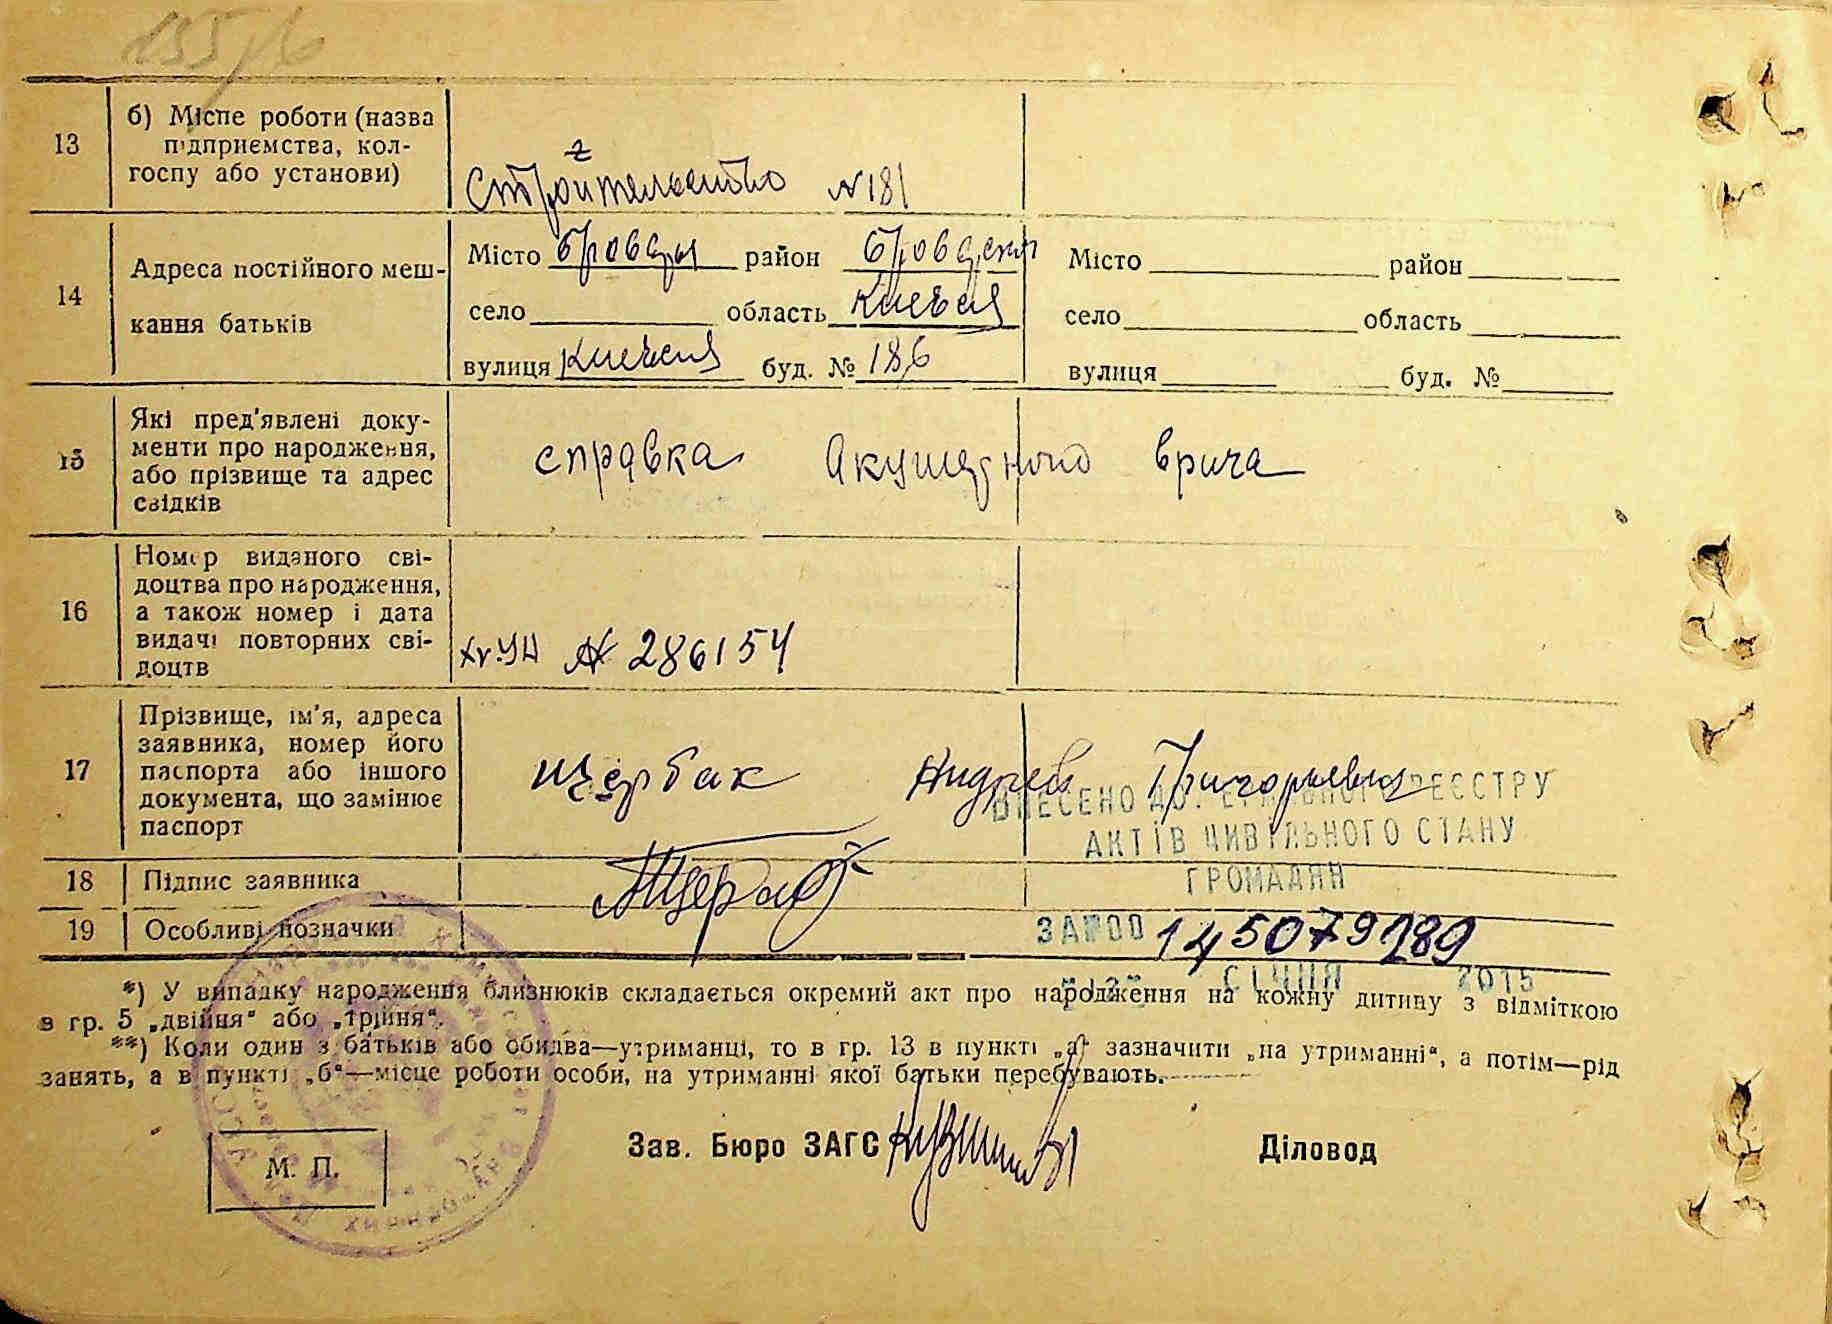 13
б) Місце роботи (назва
підприємства, кол-
госпу або установи)
Строительство №181
14
Адреса постійного меш-
кання батьків
Місто Бровары район
село область Киевск
вулиця Киевская буд. № 186
Місто район
село область
вулиця буд. №
15
Які пред'явлені доку-
менти про народження,
або прізвище та адрес
свідків
справка Акушерного врача
16
Номер виданого сві-
доцтва про народження,
а також номер і дата
видачі повторних сві-
доцтв
№ 286154
17
Прізвище, ім'я, адреса
заявника, номер його
паспорта або іншого
документа, що замінює
паспорт
Щербак Андрей Григорьевич
ВНЕСЕНО ДО ДЕРЖАВНОГО РЕЄСТРУ
АКТІВ ЦИВІЛЬНОГО СТАНУ
ГРОМАДЯН
18
Підпис заявника
19
Особливі позначки
ЗА №00 145079289
СІЧНЯ 2015
*) У випадку народження близнюків складається окремий акт про народження на кожну дитину з відміткою
в гр. 5 „двійня" або „трійня".
**) Коли один з батьків або обидва—утриманці, то в гр. 13 в пункті „а" зазначити „на утриманні", а потім—рід
занять, а в пункті „б"—місце роботи особи, на утриманні якої батьки перебувають.
Зав. Бюро ЗАГС
Діловод
М. П.